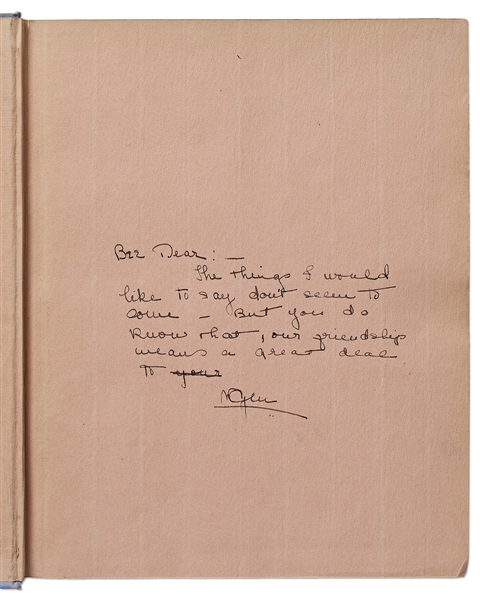 Bee Dear: —
The things I would
like to say don't seem to
come — But you do
know that, our friendship
means a great deal
to your